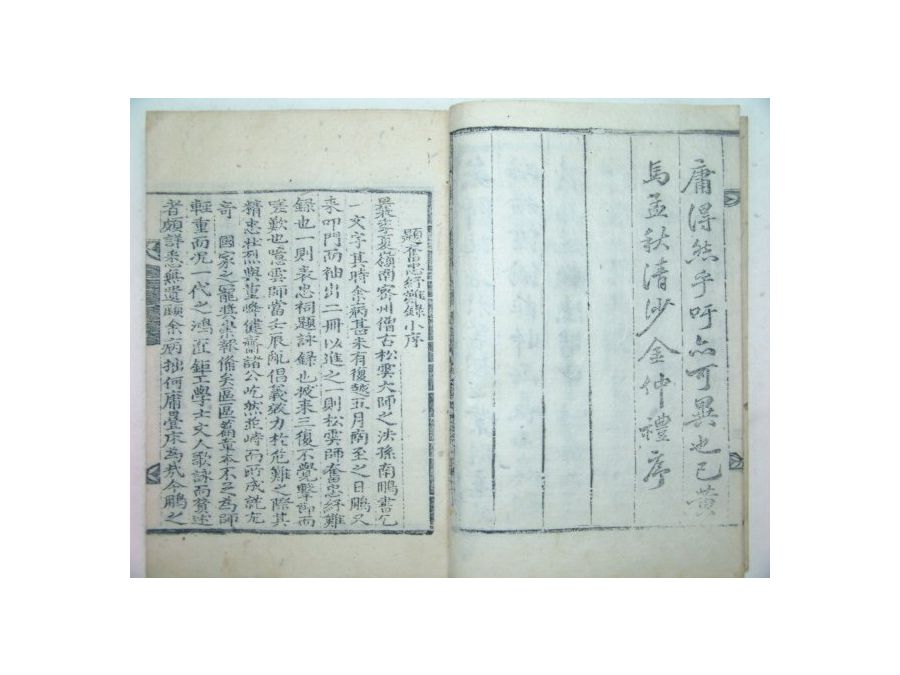 庸得然乎吁亦可異也已黃
馬孟秋清沙金仲禮序
題奮忠紓難錄小序
夏嶺南密州僧古松雲大師之法孫南鵬書乞
一文字其時余病甚未有復越五月南至之日鵬又
來叩門而袖出二冊以進之一則松雲師奮忠紓難
錄也一則表忠祠題詠錄也披來三復不覺擊節而
嗟歎也噫雲師當壬辰亂倡義效力於危難之際其
精忠壯烈與重峰健齋諸公屹然並峙而所成就尤
奇國家之寵奬崇報備矣區區篇章本不足為師
輕重而況一代之鴻匠鉅工學士文人歌詠而贊述
者頗詳悉無遺顧余病拙何庸疊床為哉今鵬之